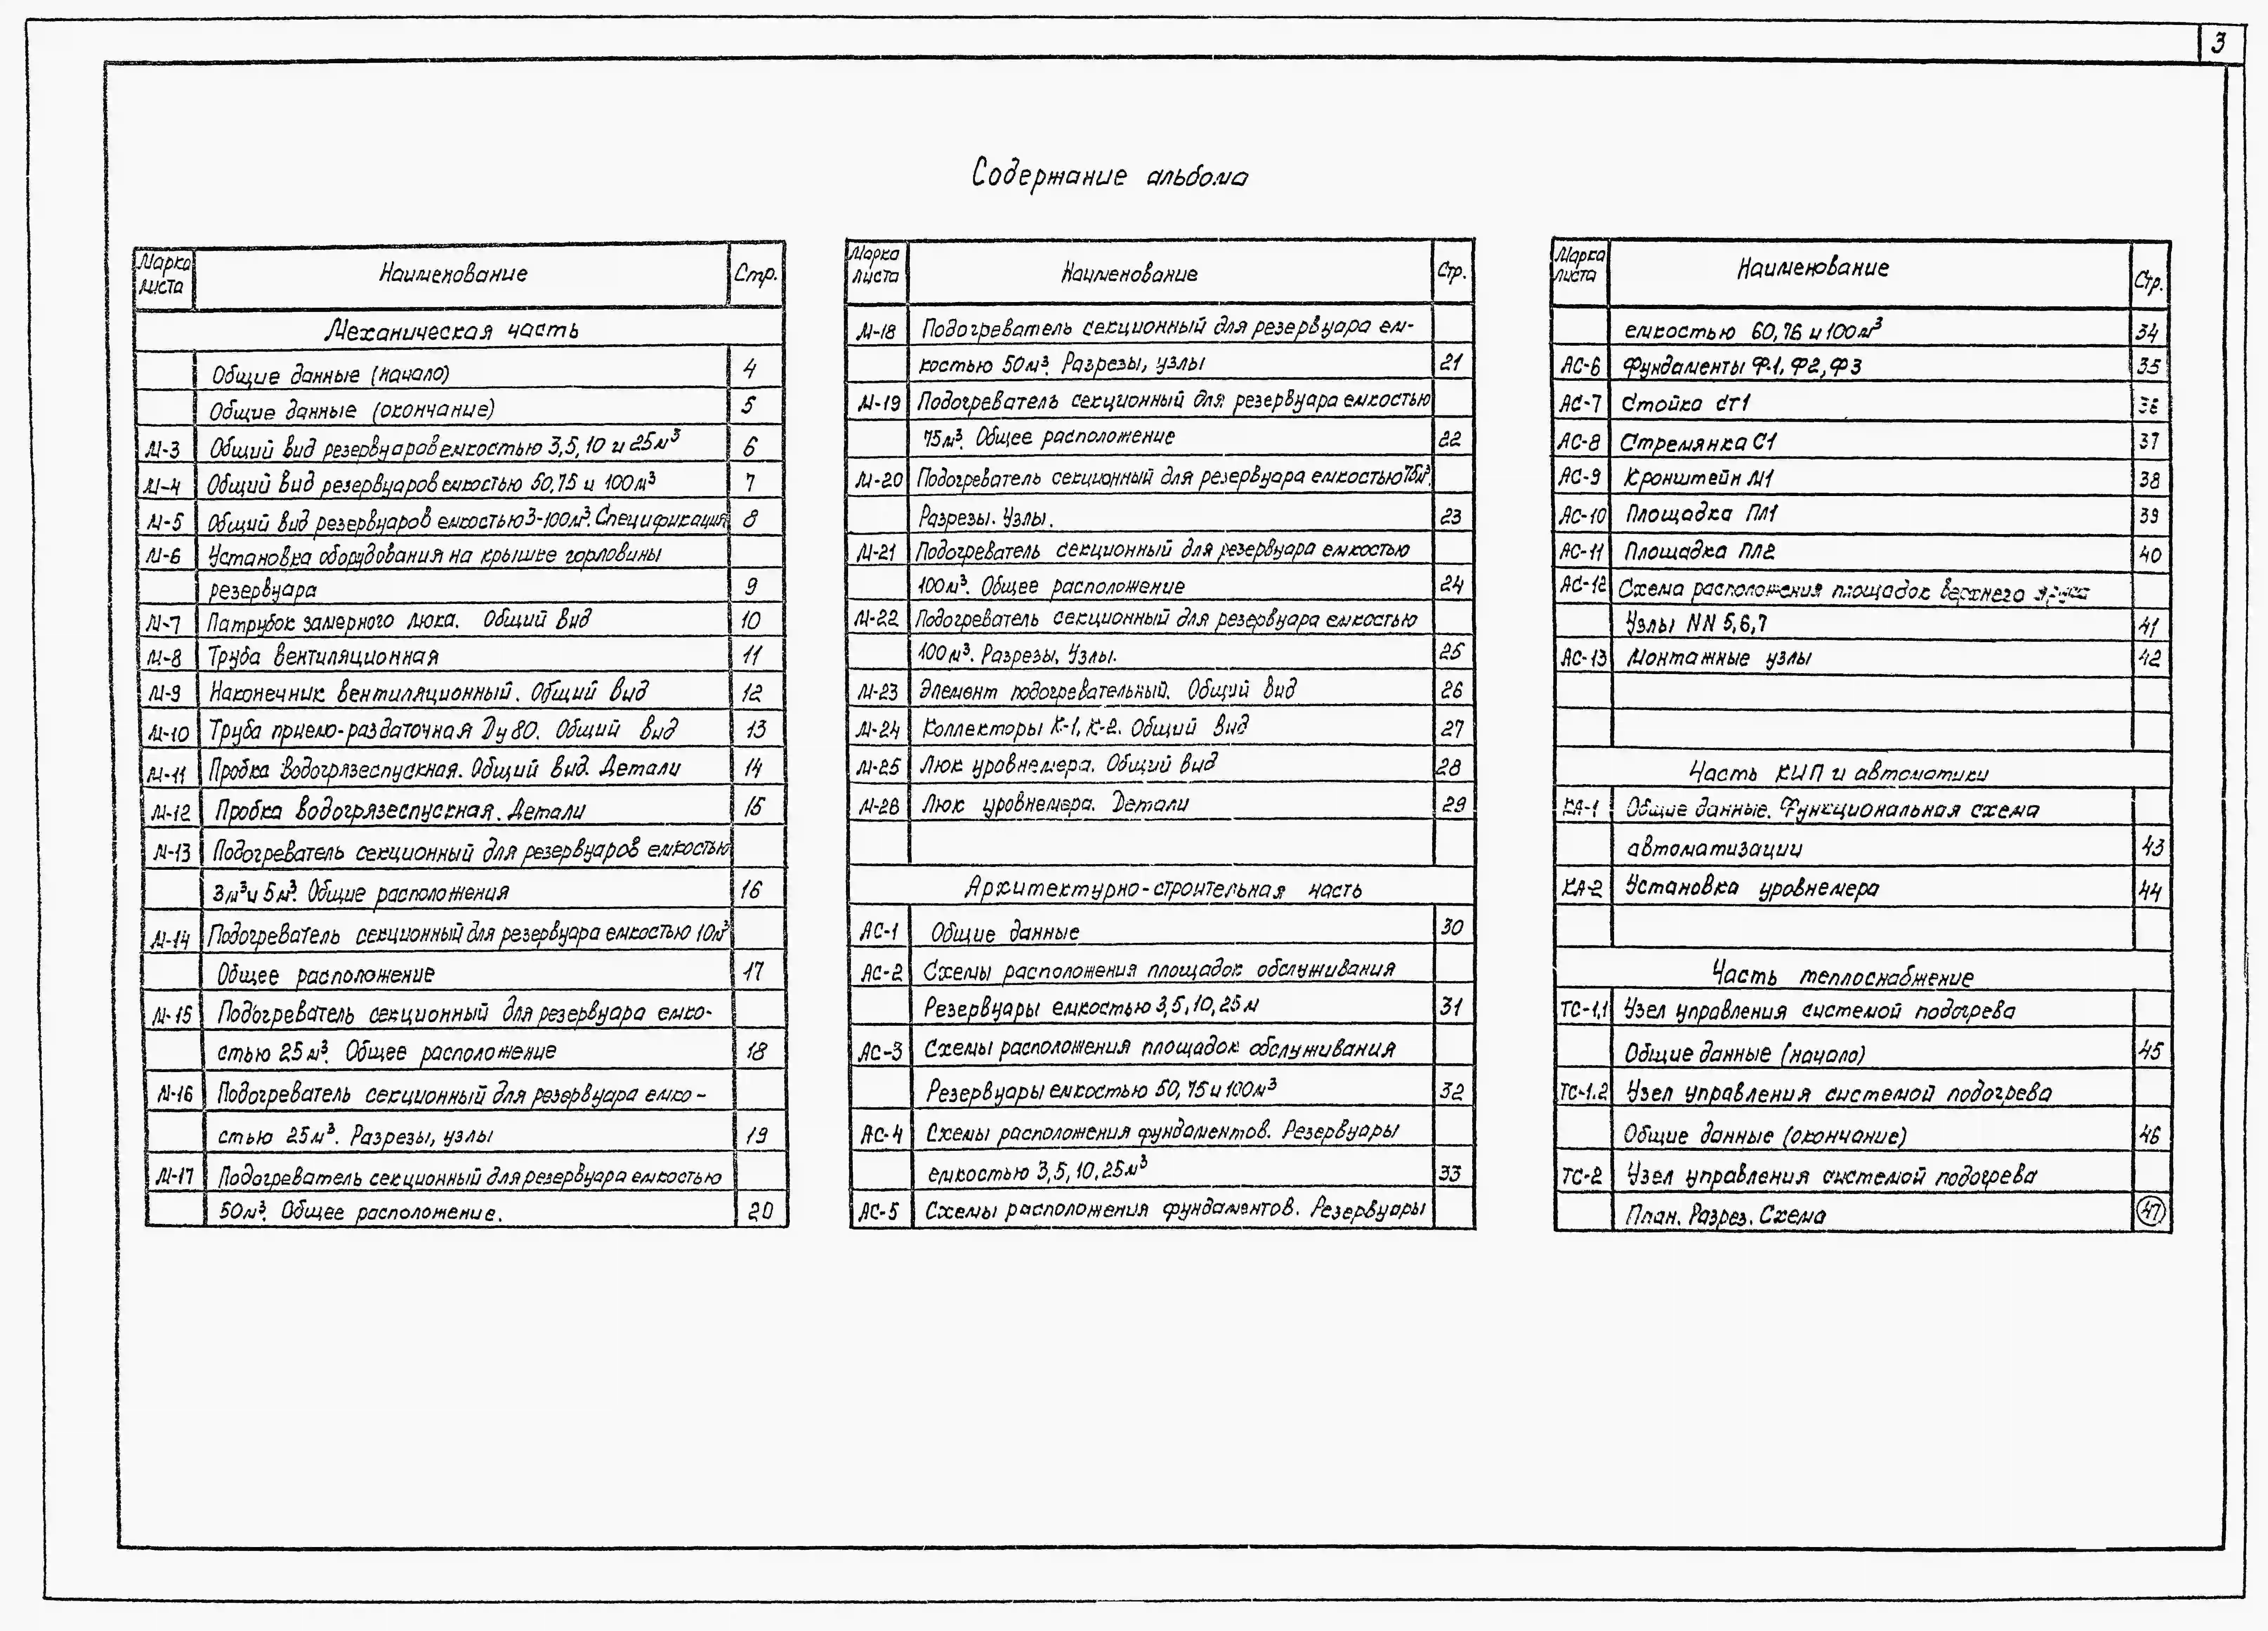 3
Содержание альбома
Марка листа Наименование Стр.
Механическая часть
Общие данные (начало) 4
Общие данные (окончание) 5
М-3 Общий вид резервуаров емкостью 3,5,10 и 25м³ 6
М-4 Общий вид резервуаров емкостью 50,75 и 100м³ 7
М-5 Общий вид резервуаров емкостью 3-100м³. Спецификация 8
М-6 Установка оборудования на крышке горловины
резервуара 9
М-7 Патрубок замерного люка. Общий вид 10
М-8 Труба вентиляционная 11
М-9 Наконечник вентиляционный. Общий вид 12
М-10 Труба приемо-раздаточная Ду 80. Общий вид 13
М-11 Пробка водогрязеспускная. Общий вид. Детали 14
М-12 Пробка водогрязеспускная. Детали 15
М-13 Подогреватель секционный для резервуаров емкостью
3м³ и 5м³. Общие расположения 16
М-14 Подогреватель секционный для резервуара емкостью 10м³
Общее расположение 17
М-15 Подогреватель секционный для резервуара емко-
стью 25м³. Общее расположение 18
М-16 Подогреватель секционный для резервуара емко-
стью 25м³. Разрезы, узлы 19
М-17 Подогреватель секционный для резервуара емкостью
50м³. Общее расположение. 20
Марка листа Наименование Стр.
М-18 Подогреватель секционный для резервуара ем-
костью 50м³. Разрезы, узлы 21
М-19 Подогреватель секционный для резервуара емкостью
75м³. Общее расположение 22
М-20 Подогреватель секционный для резервуара емкостью 75м³.
Разрезы. Узлы. 23
М-21 Подогреватель секционный для резервуара емкостью
100м³. Общее расположение 24
М-22 Подогреватель секционный для резервуара емкостью
100м³. Разрезы, Узлы. 25
М-23 Элемент подогревательный. Общий вид 26
М-24 Коллекторы К-1, К-2. Общий вид 27
М-25 Люк уровнемера. Общий вид 28
М-26 Люк уровнемера. Детали 29
Архитектурно-строительная часть
АС-1 Общие данные 30
АС-2 Схемы расположения площадок обслуживания
Резервуары емкостью 3,5,10,25м 31
АС-3 Схемы расположения площадок обслуживания
Резервуары емкостью 50,75 и 100м³ 32
АС-4 Схемы расположения фундаментов. Резервуары
емкостью 3,5,10,25м³ 33
АС-5 Схемы расположения фундаментов. Резервуары
Марка листа Наименование Стр.
емкостью 60,76 и 100м³ 34
АС-6 Фундаменты Ф-1, Ф2, Ф3 35
АС-7 Стойка Ст1 36
АС-8 Стремянка С1 37
АС-9 Кронштейн М1 38
АС-10 Площадка ПЛ1 39
АС-11 Площадка ПЛ2 40
АС-12 Схема расположения площадок верхнего яруса
Узлы NN 5,6,7 41
АС-13 Монтажные узлы 42
Часть КИП и автоматики
КА-1 Общие данные. Функциональная схема
автоматизации 43
КА-2 Установка уровнемера 44
Часть теплоснабжение
ТС-1.1 Узел управления системой подогрева
Общие данные (начало) 45
ТС-1.2 Узел управления системой подогрева
Общие данные (окончание) 46
ТС-2 Узел управления системой подогрева
План. Разрез. Схема 47